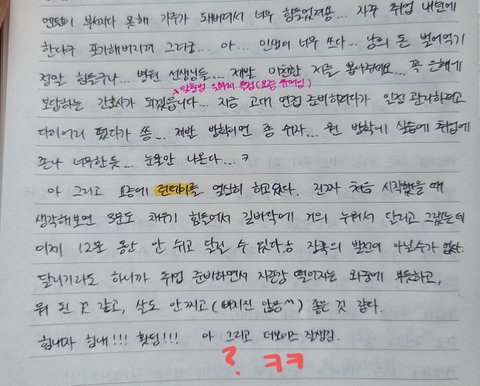 멘탈이 부서지다 못해 가루가 돼버려서 너무 힘들었어용... 자꾸 취업 내년에
한다구 포기해버리려 그러고... 아... 인생이 너무 쓰다... 남의 돈 벌어먹기
정말 힘들구나... 병원 선생님들... 제발 미천한 저를 뽑아주세요... 꼭 은혜에
보답하는 간호사가 되겠습니다... 지금 고대 면접 준비하려다가 인권 관리하려고
다이어리 폈다가 씀... 제발 방학이면 좀 쉬자... 뭔 방학에 실습에 취업에
존나 너무한듯... 눈물만 나온다... ㅋ
아 그리고 요즘에 런데이를 열심히 하고있다. 진짜 처음 시작했을 때
생각해보면 3분도 채우기 힘들어서 길바닥에 거의 누워서 달리고 그랬는데
이제 12분 동안 안 쉬고 달릴 수 있다궁 장족의 발전이 아닐수가 없다
달리기라도 하니까 취업 준비하면서 자존감 떨어지는 와중에 뿌듯하고,
뭐 된 것 같고, 살도 안찌고 (빠지진 않음^^) 좋은 것 같다.
힘내자 힘내!!! 홧팅!!! 아 그리고 더보이즈 잘생김.
? ㅋㅋ